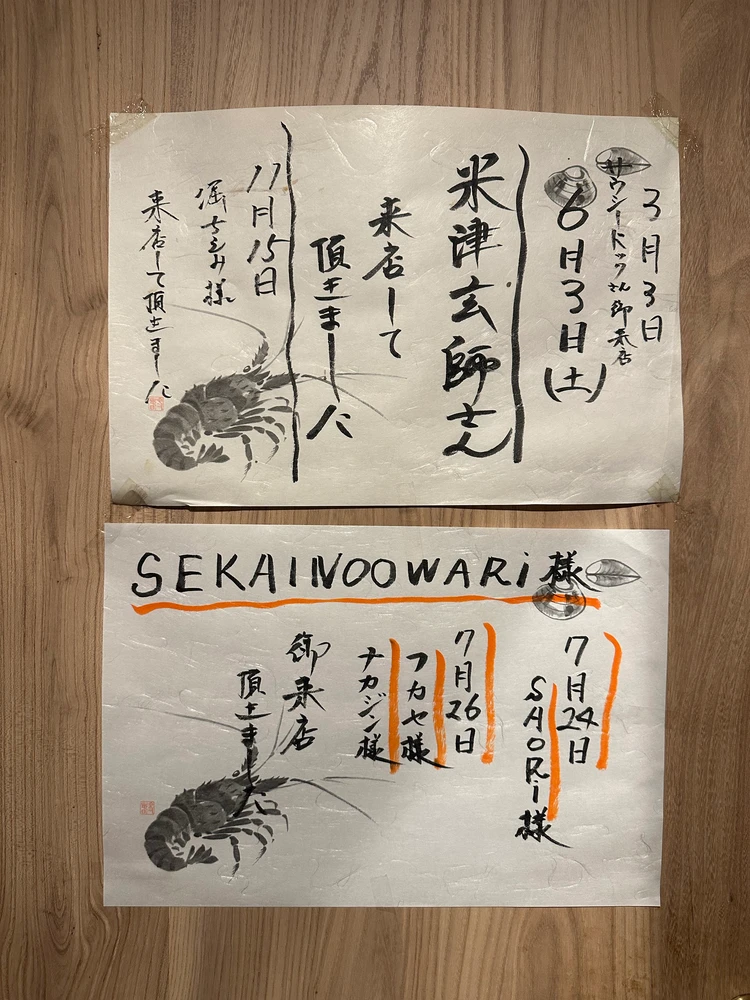 3月3日
サウシードッグさん御来店
6月3日(土)
米津玄師さん
来店して
頂きました
11月15日
堀ちえみ様
来店して頂きました
SEKAINOOWARi様
7月24日
SAORi様
7月26日
フカセ様
ナカジン様
御来店
頂きました